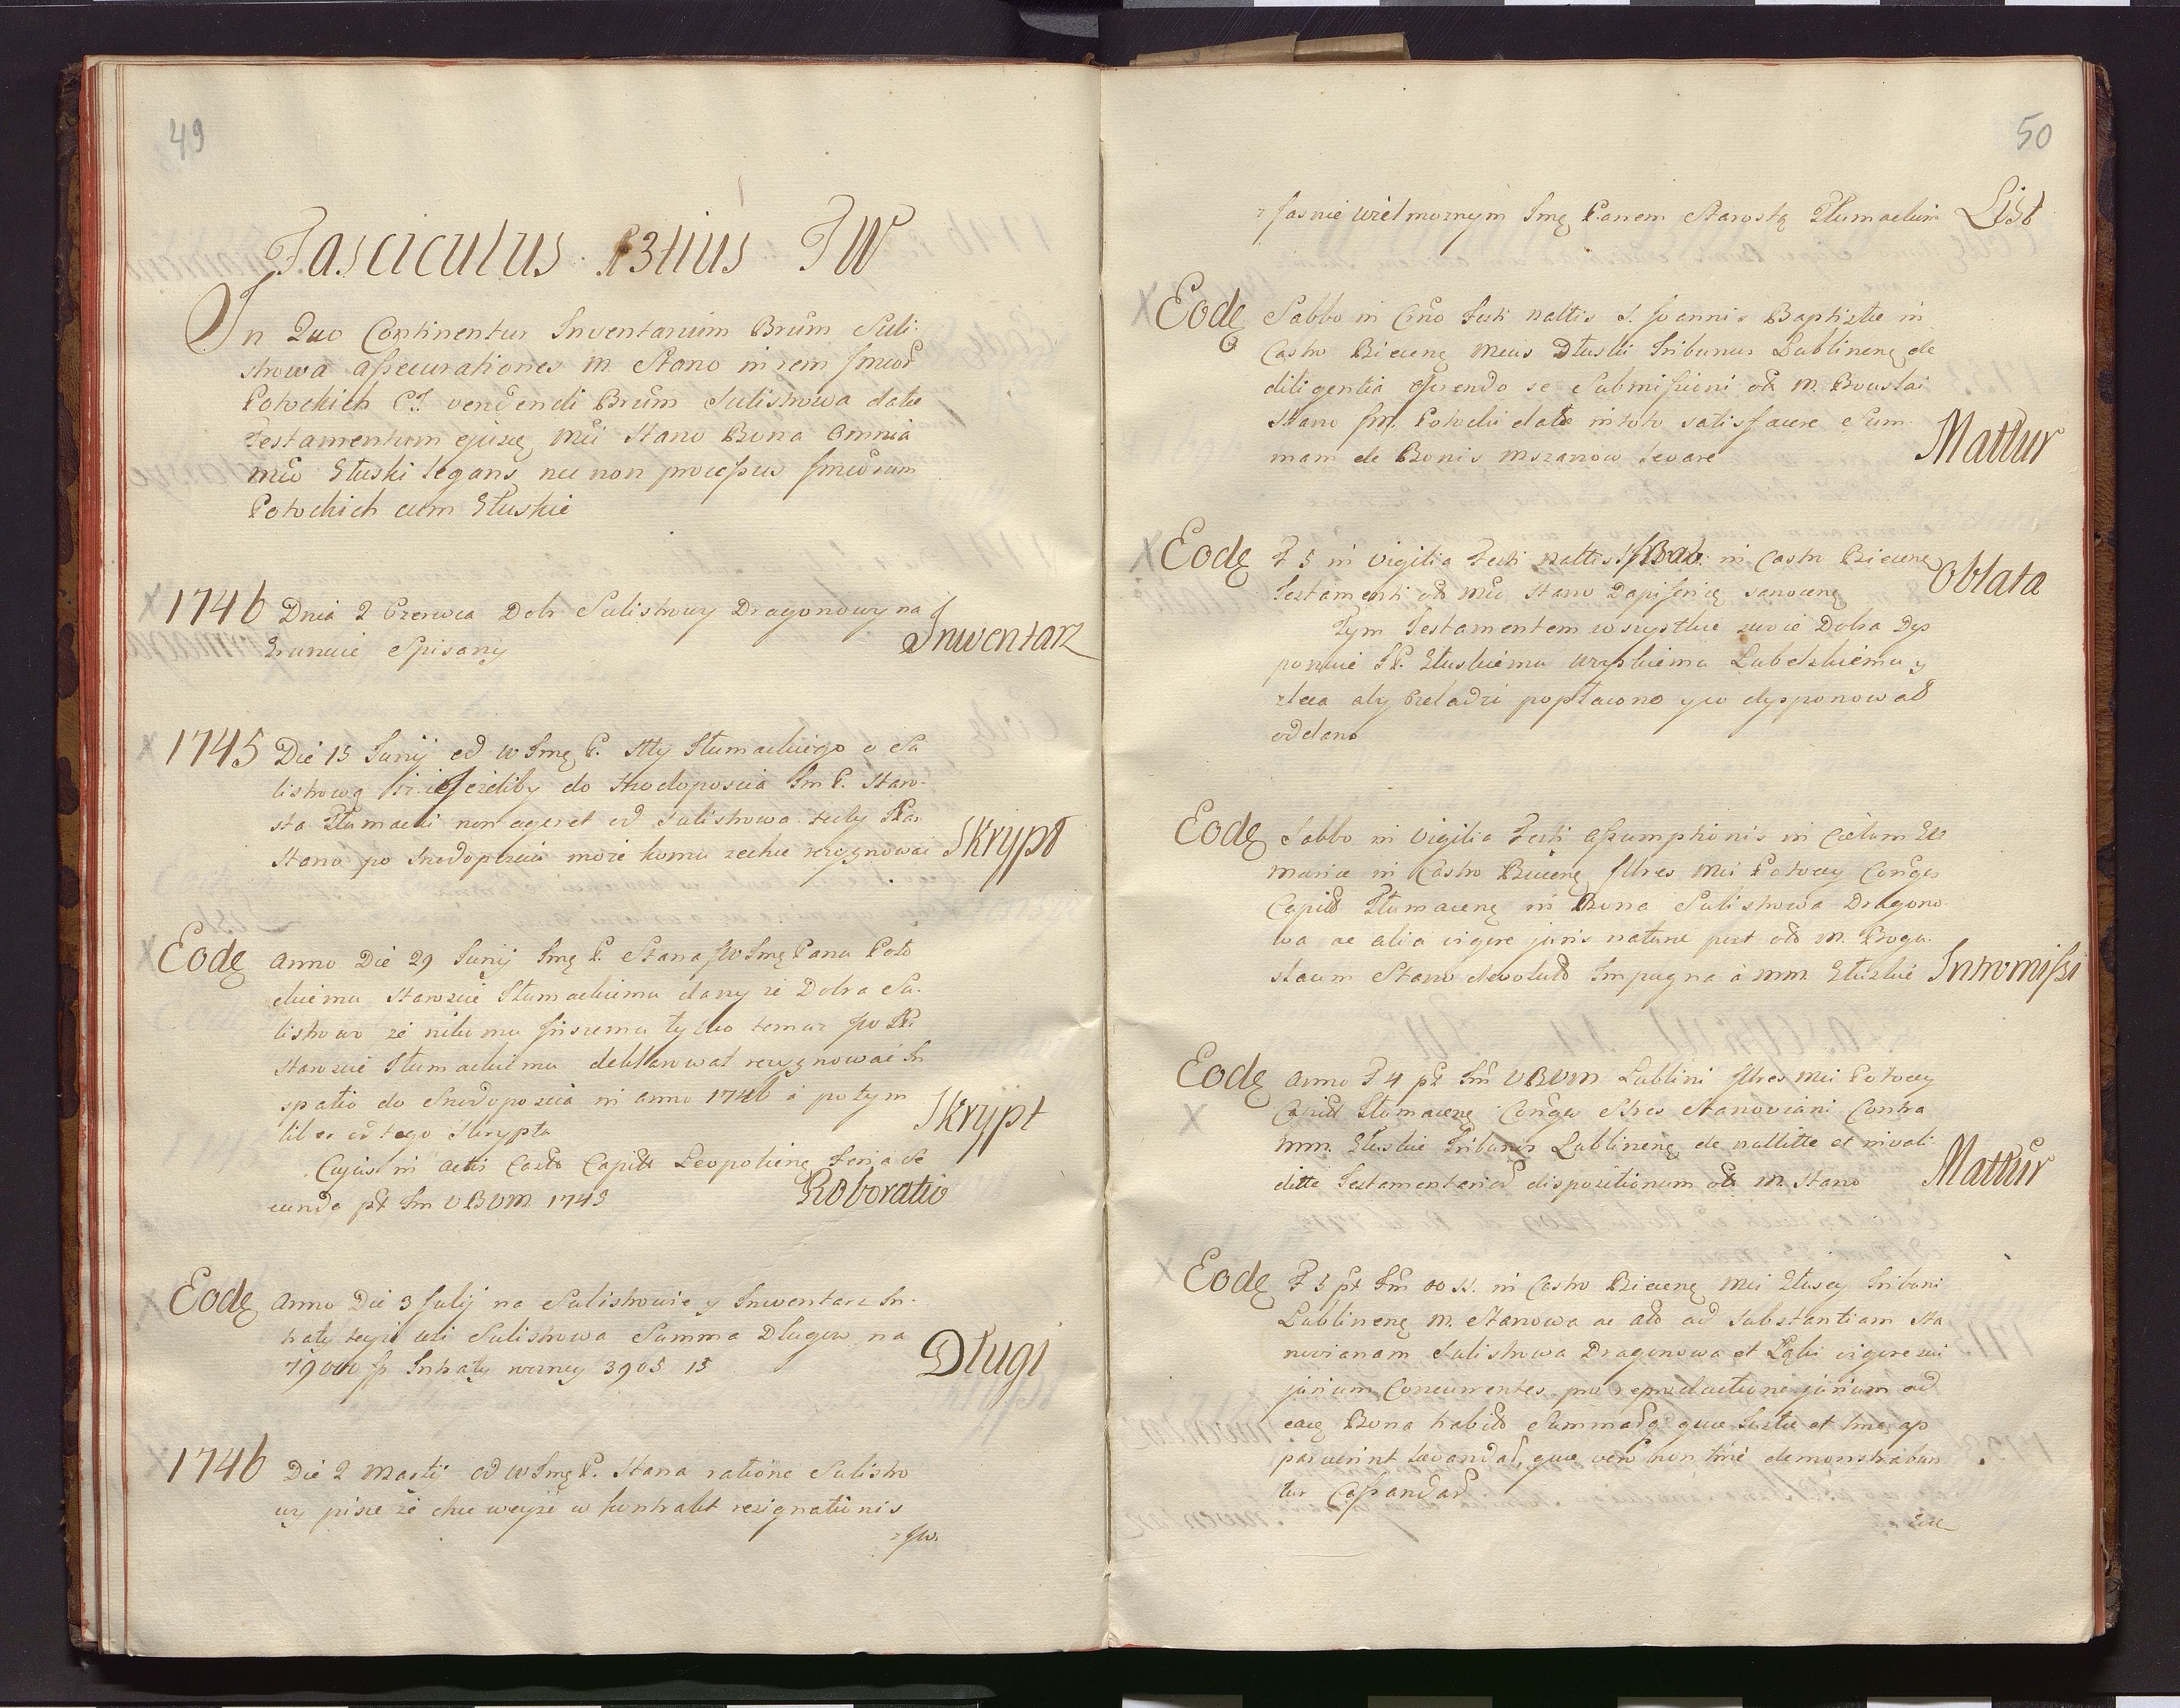 49
Fasciculus 3tius TW
In Quo Continentur Inventarium Brum Suli-
strowa assecurationes M. Stano in rem
Potockich venendi Brum Sulistrowa datae
Testamentum ejusq Mci Stano Bona Omnia
Mco Głuski legans nec non processus
Potockich cum Głuskie
1746 Dnia 2 Czerwca Dobr Sulistrowy Dragonowy na
Gruncie Spisany Inwentarz
1745 Die 15 Junij od W Jmę P. Stty Tłumackiego o Su
listrowę jeżeliby do Srzodoposcia Jm P. Staro-
sta Tłumacki non ageret od Sulistrowa tedy P.
Stana po Srzedoposciu może komu zechce rezygnować Skrypt
Eodę anno Die 29 Junij Jmę P. Stana JW Jmę Panu Poto
ckiemu Staroscie Tłumackiemu dany że Dobra Su-
listrowo że nikomu inszemu tylko temuz JW P.
Staroscie Tłumackiemu deklarował rezygnować In
spatio do Srzedoposcia in anno 1746 a potym
liber od tego Skryptu Skrypt
Cujus in actis Capit Leopoliens Feria Se
cunda pt Fm VBVM 1745 Roboratio
Eodę Anno Die 3 Julij na Sulistrowie y Inwentarz In-
traty teyże wsi Sulistrowa Summa Długow na
79000 Intraty roczney 3905 15 Długi
1746 Die 2 Martij od W Jmę P. Stana ratione Sulistro
wy pisze że chce weyść w kontrakt rezignationis
z JW.
50
z Jasnie Wielmoznym Jmę Panem Starostą Tłumackim List
Eodę Sabbo in Cro Festi Nattis S. Joannis Baptistae in
Castro Biecenę Meus Dłuski Tribunus Lublinenę de
diligentia offerendo se Submissioni ol: M. Bousłai
Stano Potocki datae in toto satisfacere Sum-
mam de Bonis Mszanow levare Mattur
Eodę F 5 in Vigilia Festi Nattis in Castro Biecenę
Testamenti ol: Mci Stano Dapiferię Sanocenę Oblata
Tym Testamentem wszystkie swoie Dobra Dys
ponuie JP. Głuskiemu Lubelskiemu y
zleca aby popłacono y co dysponował
oddano
Eodę Sabbo in Vigilia Festi Assumptionis in Cœlum
Mariae in Castro Biecenę Mci Potoccy Conges
Capit Tłumacenę in Bona Sulistrowa Dragono-
wa ac alia vigore juris naturae post ol: M. Bogu-
slaum Stano devolut Impugna à MM Głuskie Intromissi
Eodę Anno F 4 pt Fm VBVM Lublini Mci Potoccy
Capit Tłumacenę Conges Stanoviani Contra
MM. Głuskie Tribunos Lublinenę de nullitte et invali
ditte Testamentariar dispositionum ol: M. Stano Mattur
Eodę F 5 pt Fm OO SS. in Castro Biecenę Mci Głuscy Tribuni
Lublinenę M. Stanowa ac alt ad Substantiam Sta
novianam Sulistrowa Dragonowa et Łęki vigore sui
jurium Concurrentes pro reproductione jurium ad
eaę Bona habit Summadq quae Iustae et lme ap
paruerint levandas, quae vero non lme demonstrabun
tur Cassandas